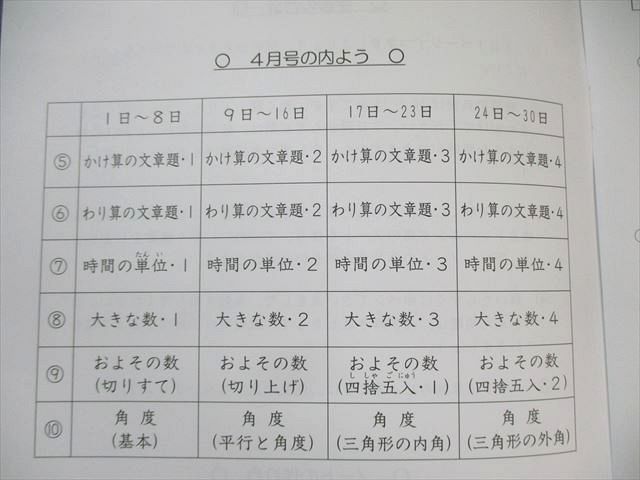 ○ 4月号の内よう ○
1日～8日 9日～16日 17日～23日 24日～30日
⑤ かけ算の文章題・1 かけ算の文章題・2 かけ算の文章題・3 かけ算の文章題・4
⑥ わり算の文章題・1 わり算の文章題・2 わり算の文章題・3 わり算の文章題・4
たん い
⑦ 時間の単位・1 時間の単位・2 時間の単位・3 時間の単位・4
⑧ 大きな数・1 大きな数・2 大きな数・3 大きな数・4
⑨ およその数 およその数 およその数 およその数
し しゃ ご にゅう
(切りすて) (切り上げ) (四捨五入・1) (四捨五入・2)
⑩ 角度 角度 角度 角度
(基本) (平行と角度) (三角形の内角) (三角形の外角)